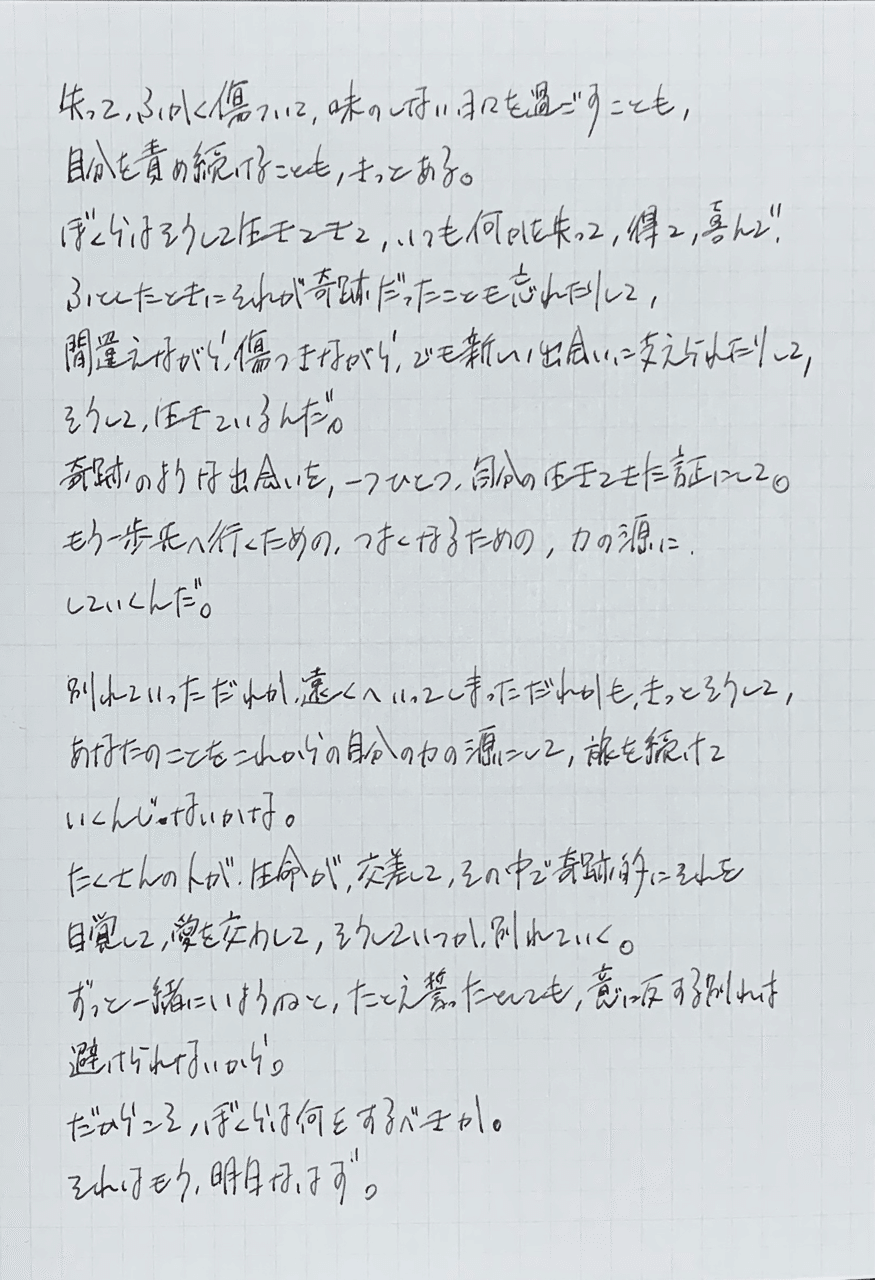 失って、ふかく傷ついて、味のしない日々を過ごすことも、
自分を責め続けることも、きっとある。
ぼくらはそうして生きてきて、いつも何かを失って、得て、喜んで、
ふとしたときにそれが奇跡だったことも忘れたりして、
間違えながら、傷つきながら、でも新しい出会いに支えられたりして、
そうして、生きているんだ。
奇跡のような出会いを、一つひとつ、自分の生きてきた証にして。
もう一歩先へ行くための、つよくなるための、力の源に、
していくんだ。
別れていっただれか、遠くへいってしまっただれかも、きっとそうして、
あなたのことをこれからの自分の力の源にして、旅を続けて
いくんじゃないかな。
たくさんの人が、生命が、交差して、その中で奇跡的にそれを
自覚して、愛を交わして、そうしていつか、別れていく。
ずっと一緒にいようねと、たとえ誓ったとしても、意に反する別れは
避けられないから。
だからこそ、ぼくらは何をするべきか。
それはもう、明白なはず。